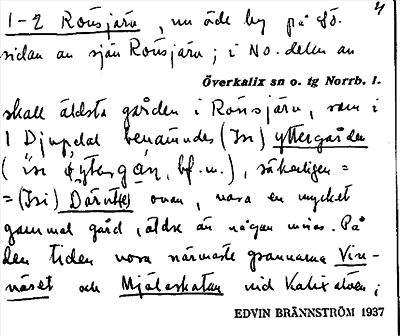 1-2 Rörsjärv, nu öde by på sö. 4
sidan av sjön Rörsjärv; i No. delen av
Överkalix sn o. tg Norrb. l.
skall äldsta gården i Rörsjärv, som i
1 Djupdal benämndes (Isi) yttergården
bf. n.), säkerligen =
= (Isi) ovan, vara en mycket
gammal gård, äldre än någon minns. På
den tiden voro närmaste grannarna Vin-
näset och Mjölaskatan vid Kalix älven;
EDVIN BRÄNNSTRÖM 1937